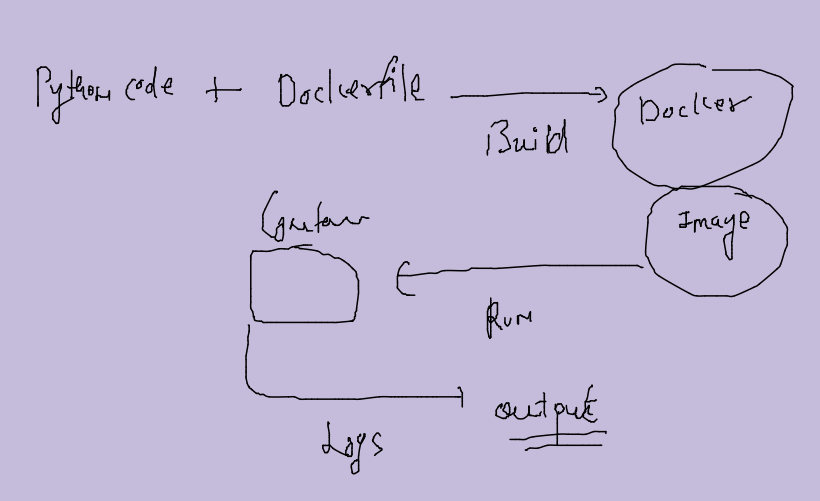 Python code + Dockerfile
Build
Docker
Image
Container
Run
Logs
output